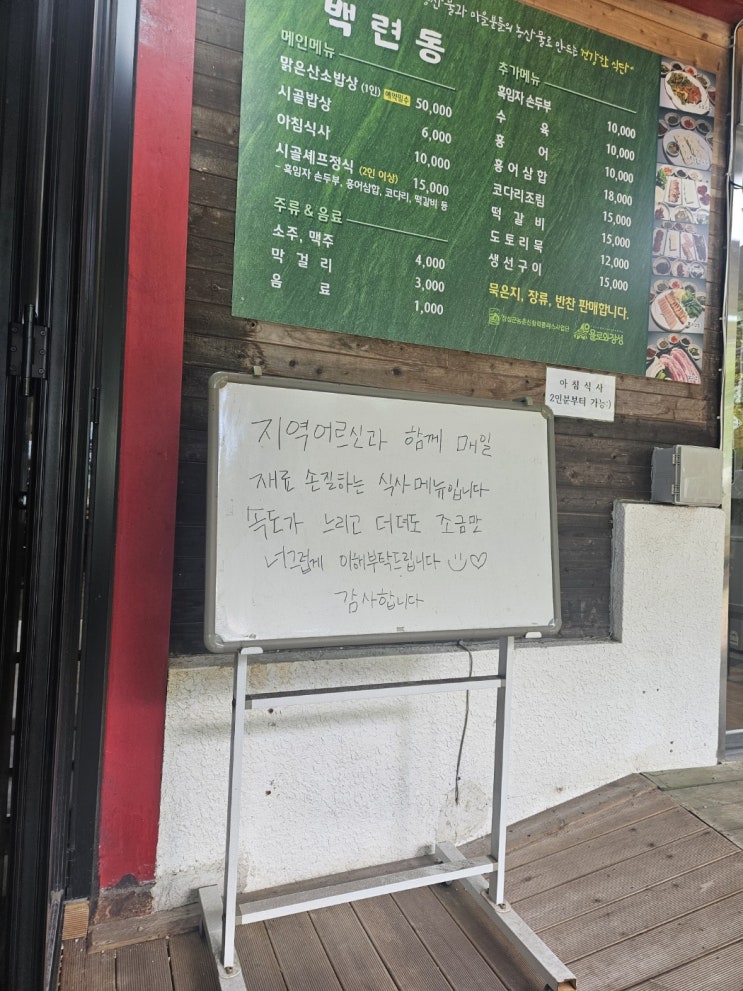 마을분들의 농산물로 만드는 건강한 식단
백련동
메인메뉴
맑은산소밥상 (1인) 예약필수 50,000
시골밥상 6,000
아침식사 10,000
시골셰프정식 (2인 이상) 15,000
- 흑임자 손두부, 홍어삼합, 코다리, 떡갈비 등
주류 & 음료
소주, 맥주 4,000
막걸리 3,000
음료 1,000
추가메뉴
흑임자 손두부 10,000
수육 10,000
홍어 10,000
홍어삼합 18,000
코다리조림 15,000
떡갈비 15,000
도토리묵 12,000
생선구이 15,000
묵은지, 장류, 반찬 판매합니다.
아침식사
2인분부터 가능:)
지역어르신과 함께 매일
재료 손질하는 식사메뉴입니다
속도가 느리고 더뎌도 조금만
너그럽게 이해부탁드립니다
감사합니다